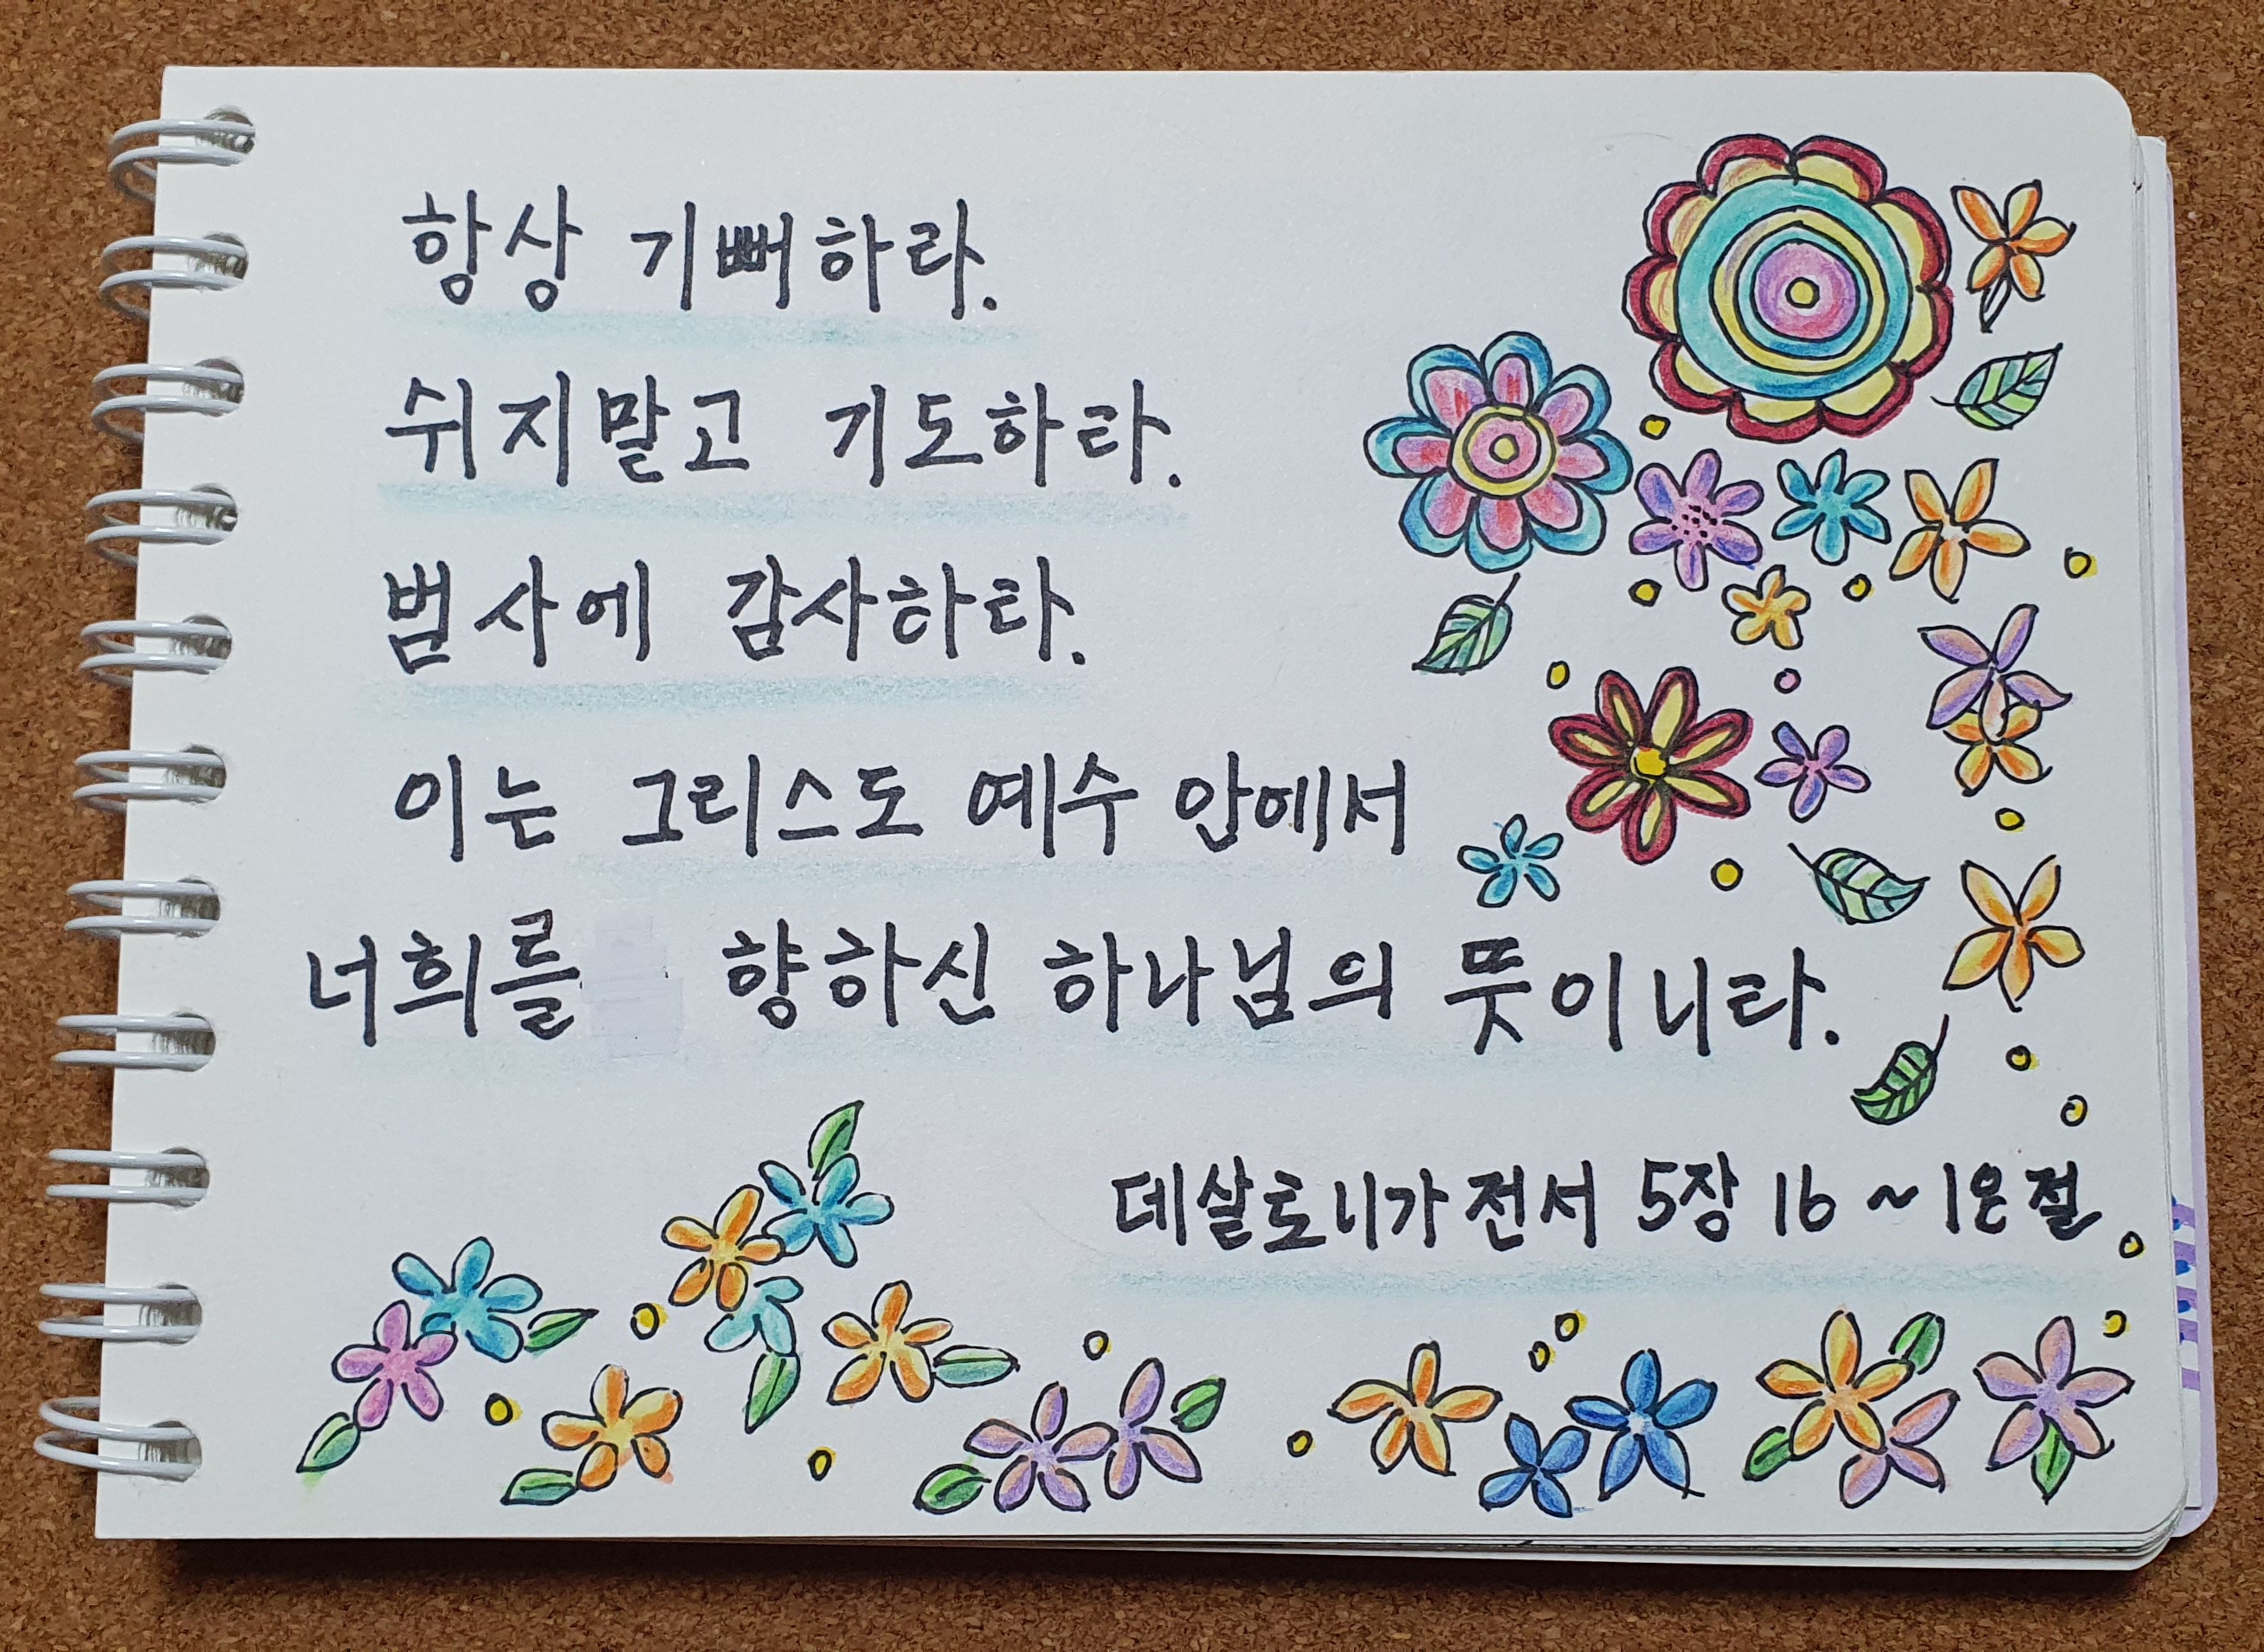 항상 기뻐하라.
쉬지말고 기도하라.
범사에 감사하라.
이는 그리스도 예수 안에서
너희를 향하신 하나님의 뜻이니라.
데살로니가전서 5장 16~18절